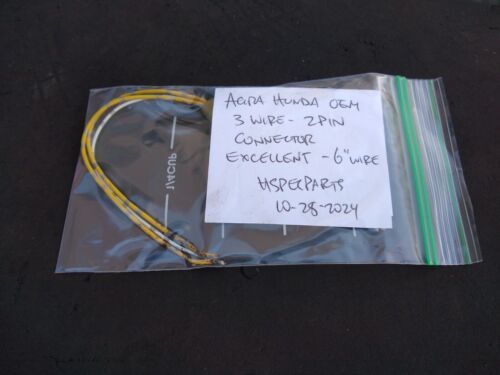 ACURA HONDA OEM
3 WIRE - 2 PIN
CONNECTOR
EXCELLENT - 6" WIRE
HSPECPARTS
10-28-2024
1/4CUP